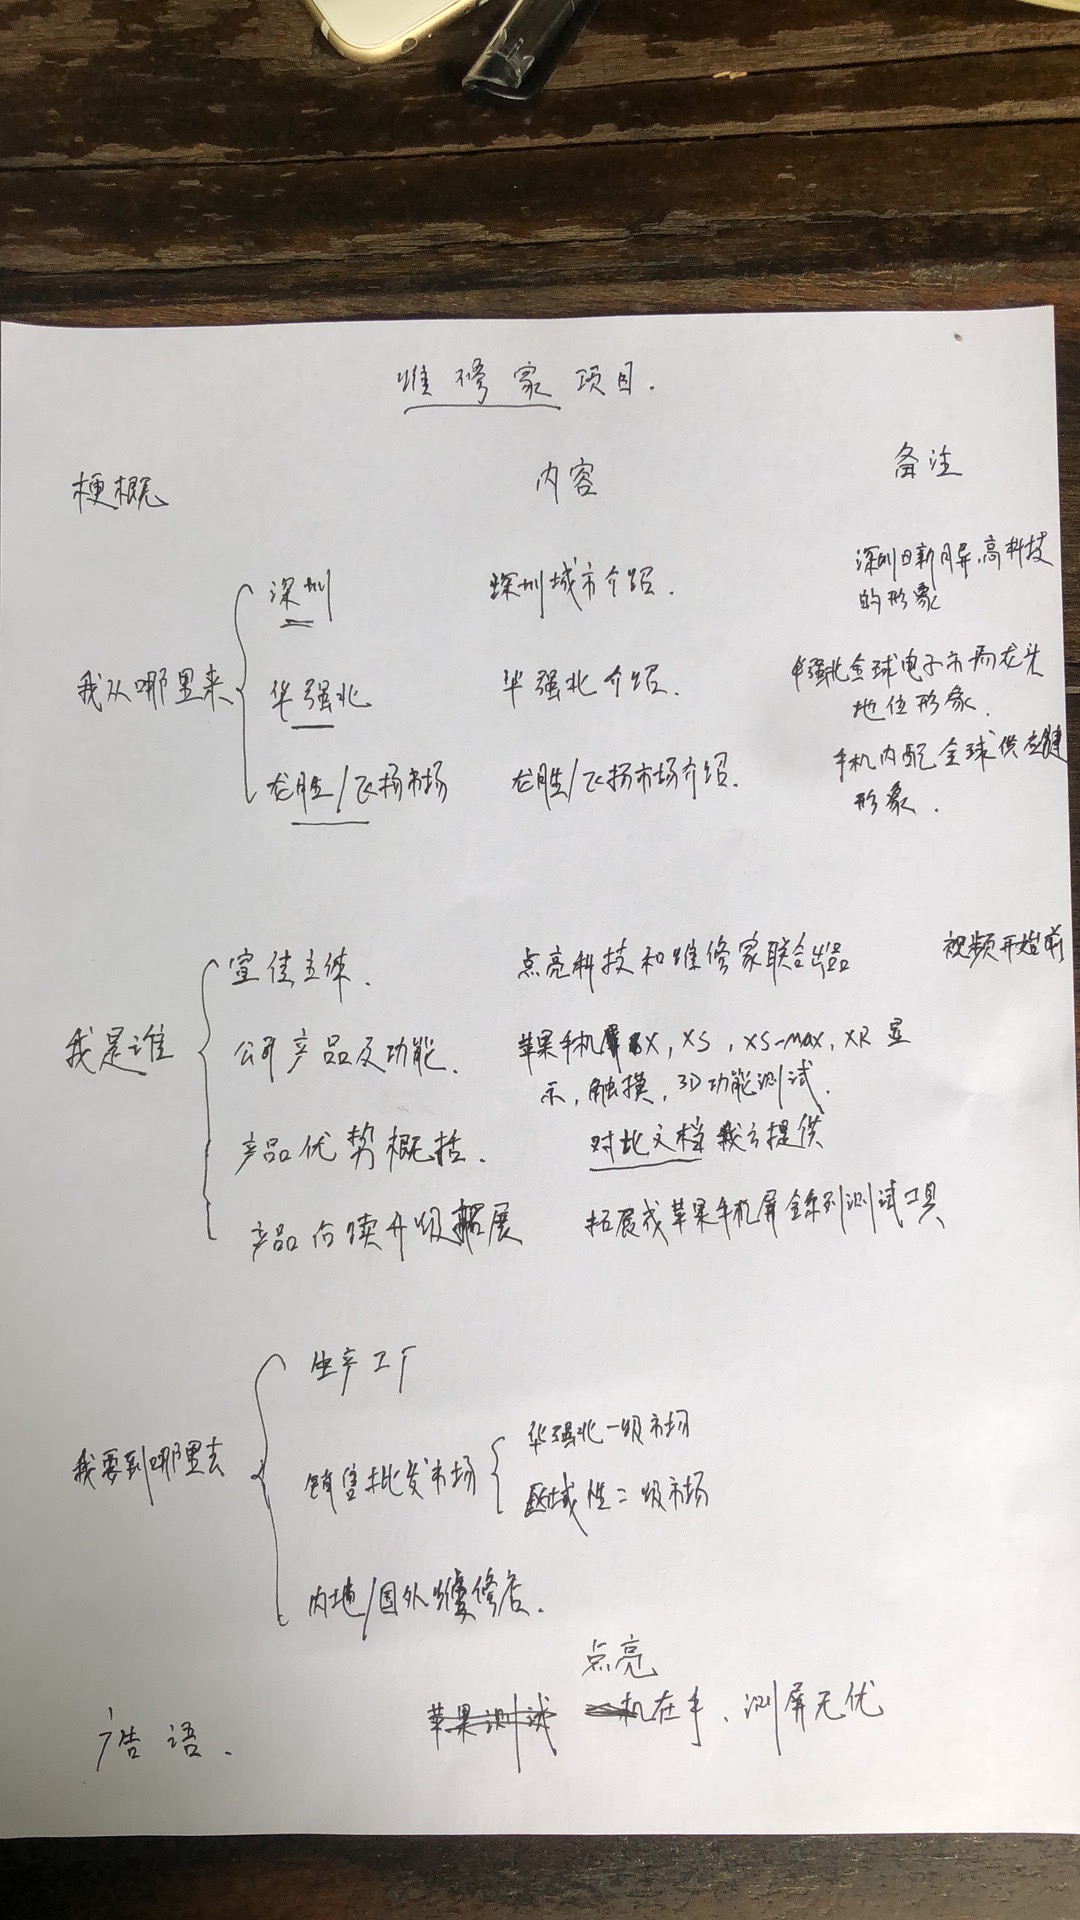 维修家项目.
梗概 内容 备注
深圳 深圳城市介绍. 深圳日新月异,高科技
的形象
我从哪里来 华强北 华强北介绍. 华强北全球电子市场龙头
地位形象.
龙胜/飞扬市场 龙胜/飞扬市场介绍. 手机内配全球供应链
形象.
宣传主体. 点亮科技和维修家联合出品 视频开始前
我是谁 公司产品及功能. 苹果手机屏X,XS,XS-MAX,XR显
示,触摸,3D功能测试.
产品优势概括. 对比文档我方提供
产品后续升级拓展 拓展成苹果手机屏全系列测试工具
生产工厂
我要到哪里去 销售批发市场 华强北一级市场
区域性二级市场
内地/国外维修店.
点亮
广告语. 苹果测试 机在手,测屏无优